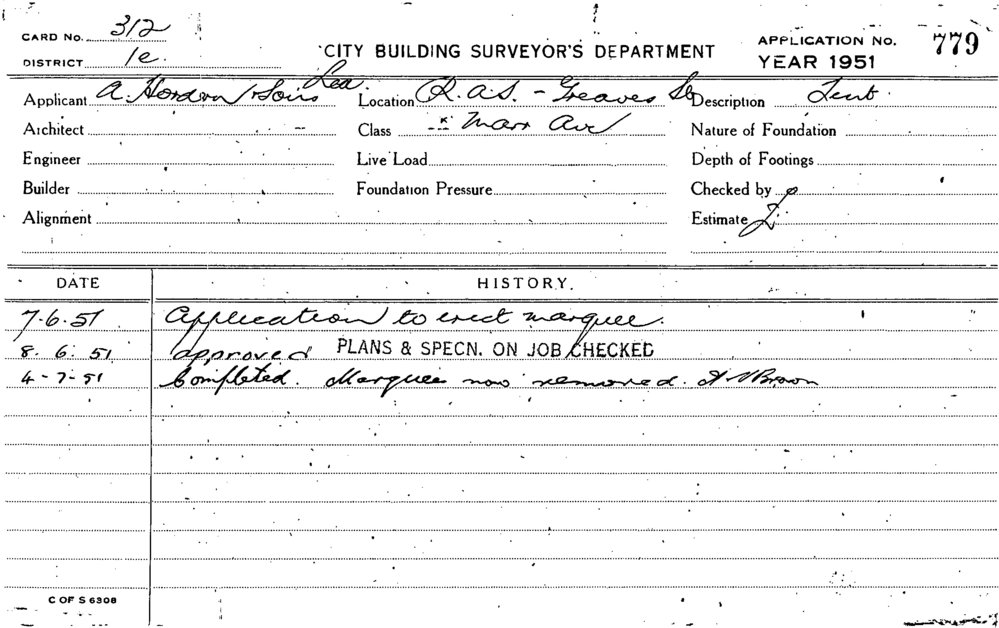 CARD No. 312
DISTRICT 1e.
CITY BUILDING SURVEYOR'S DEPARTMENT
APPLICATION No. 779
YEAR 1951
Applicant A. Hordern & Sons Location R.A.S. - Greaves Description Tent.
Architect Class Marr Ave Nature of Foundation
Engineer Live Load Depth of Footings
Builder Foundation Pressure Checked by
Alignment Estimate £
DATE HISTORY.
7.6.51 Application to erect marquee.
8.6.51 approved PLANS & SPECN. ON JOB CHECKED
4-7-51 Completed. Marquee now removed. Brown
C OF S 6308